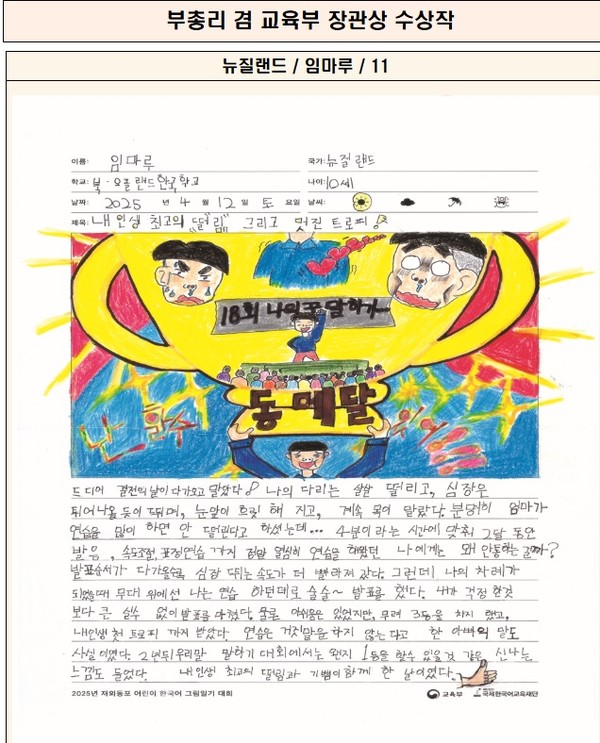 부총리 겸 교육부 장관상 수상작
뉴질랜드 / 임마루 / 11
이름: 임마루 국가: 뉴질랜드
학교: 북·오클랜드한국학교 나이: 10세
날짜: 2025 년 4 월 12 일 토 요일 날씨:
제목: 내 인생 최고의 "떨림" 그리고 멋진 트로피!
18회 나의 꿈 말하기...
동메달
드디어 결전의 날이 다가오고 말았다 나의 다리는 살살 떨리고, 심장은
튀어나올 듯이 뛰며, 눈앞이 흐릿해 지고, 계속 목이 말랐다. 분명히 엄마가
연습을 많이 하면 안 떨린다고 하셨는데... 4분이라는 시간에 맞춰 2달 동안
발음, 속도조절, 표정연습 까지 정말 열심히 연습을 해왔던 나에게는 왜 안통하는걸까?
발표순서가 다가올수록 심장 뛰는속도가 더 빨라져 갔다. 그런데 나의 차례가
되었을때 무대 위에선 나는 연습 하던데로 술술~ 발표를 했다. 내가 걱정 한것
보다 큰 실수 없이 발표를 마쳤다. 물론 아쉬움은 있었지만, 무려 3등을 차지 했고,
내인생 첫 트로피 까지 받았다. 연습은 거짓말을 하지 않는 다고 한 아빠의 말도
사실이였다. 2년뒤 우리말 말하기 대회에서는 왠지 1등을 할수 있을것 같은 신나는
느낌도 들었다. 내 인생 최고의 떨림과 기쁨이 함께 한 날이였다.
2025년 재외동포 어린이 한국어 그림일기 대회 교육부 국제한국어교육재단